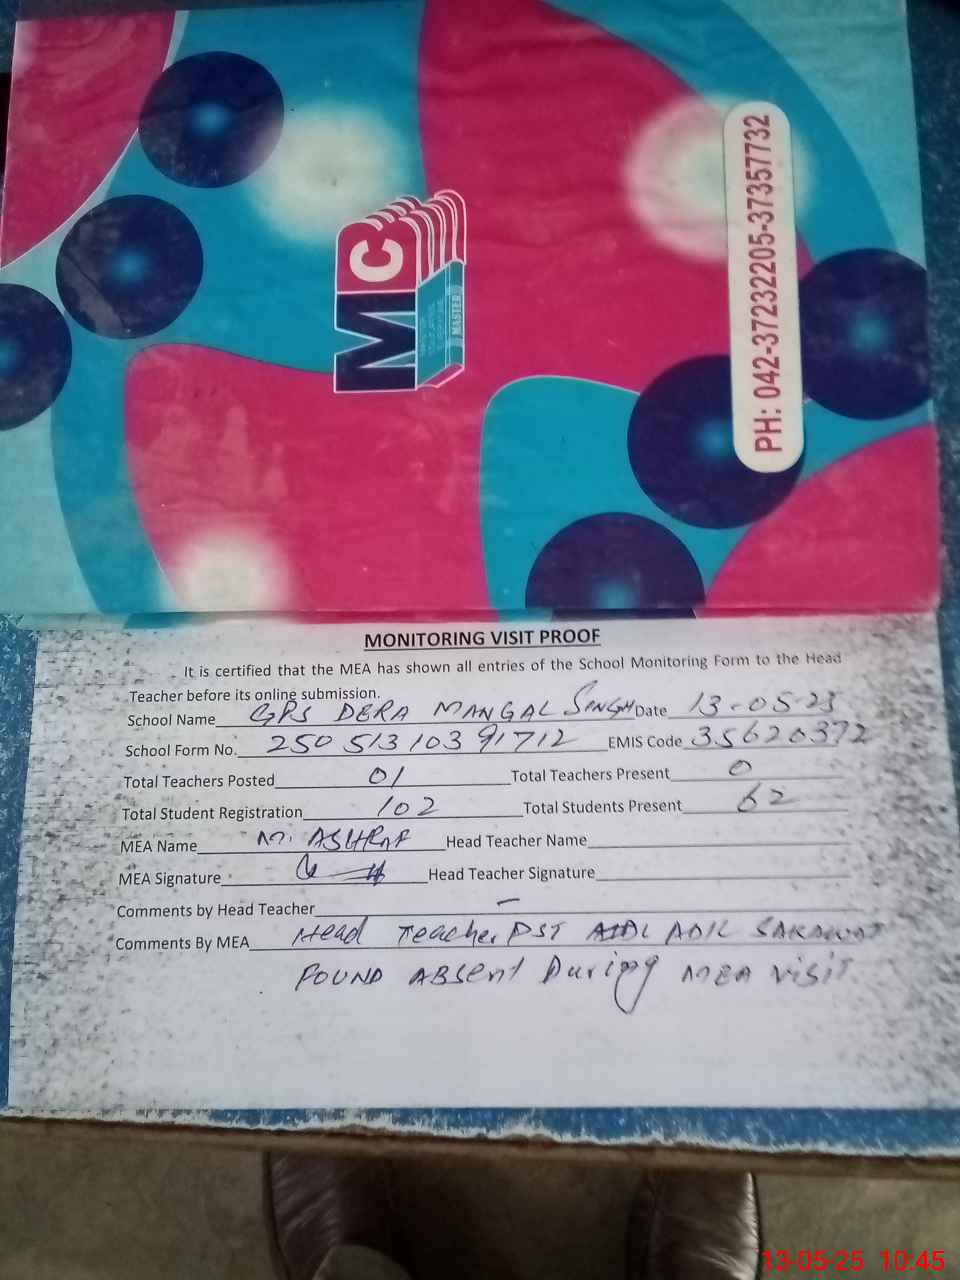 MC
MASTER
PH: 042-37232205-37357732
MONITORING VISIT PROOF
It is certified that the MEA has shown all entries of the School Monitoring Form to the Head
Teacher before its online submission.
School Name GPS DERA MANGAL SINGH Date 13-05-23
School Form No. 25051310391712 EMIS Code 35620372
Total Teachers Posted 01 Total Teachers Present 0
Total Student Registration 102 Total Students Present 62
MEA Name M. ASHRAF Head Teacher Name
MEA Signature Head Teacher Signature
Comments by Head Teacher –
Comments By MEA Head Teacher PST ADIL SAKAWAT
FOUND ABSENT During MEA VISIT
13-05-25 10:45